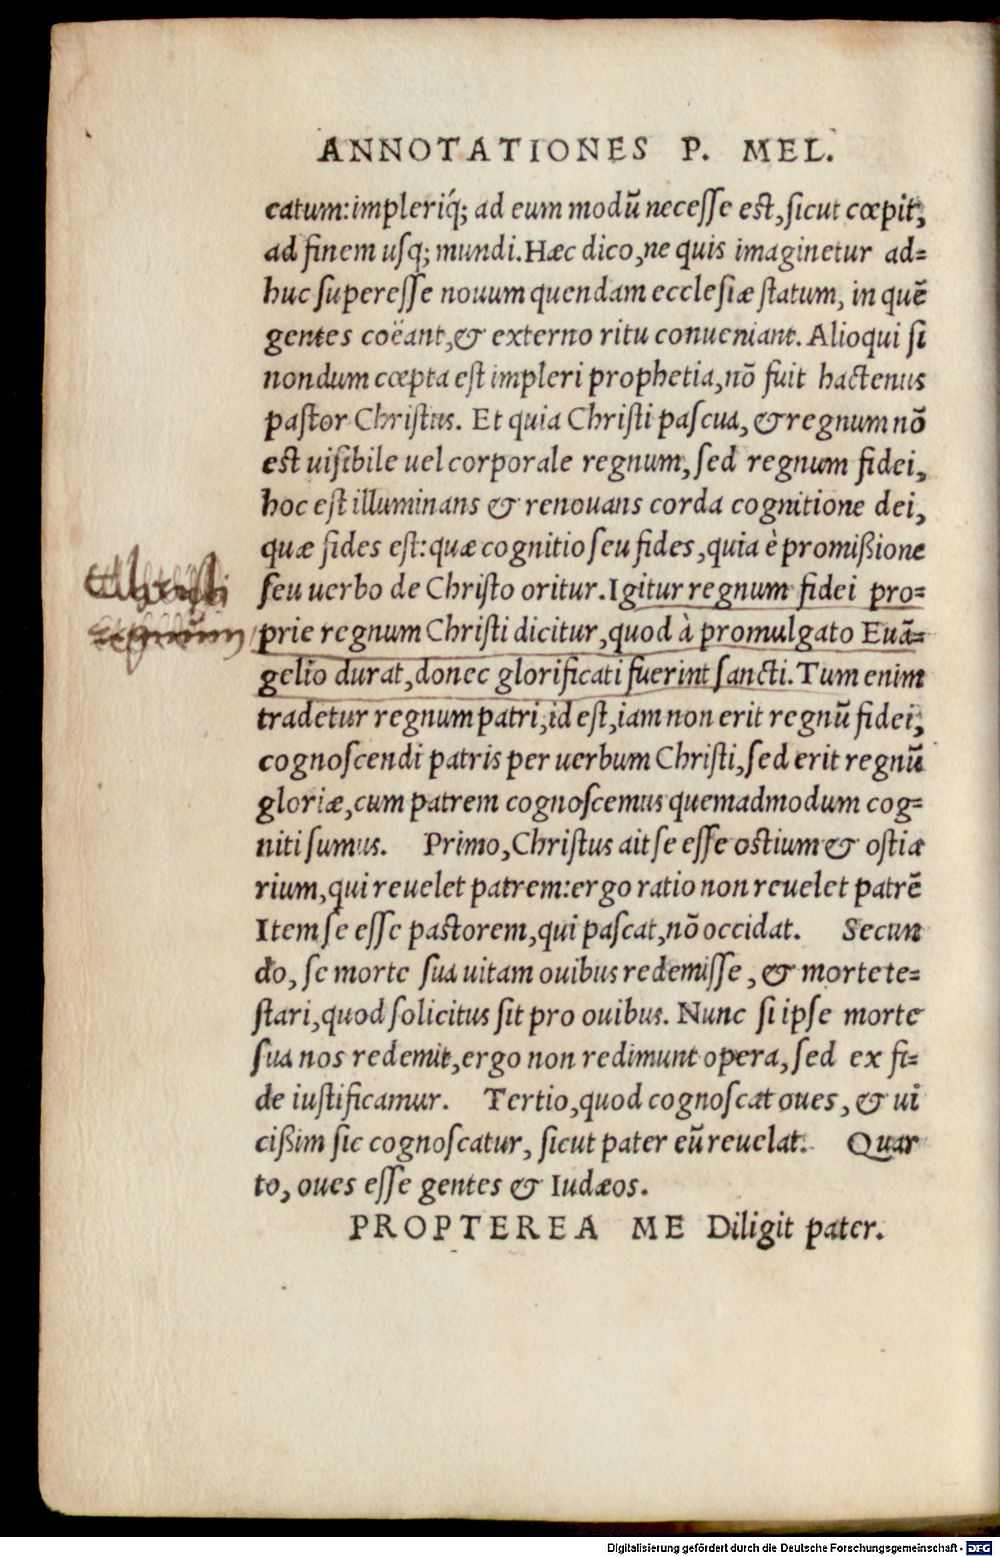 ANNOTATIONES P. MEL.
catum:impleriq́; ad eum modū necesse est,sicut cœpit,
ad finem usq; mundi.Hæc dico,ne quis imaginetur ad=
huc superesse nouum quendam ecclesiæ statum, in quē
gentes coëant,& externo ritu conueniant. Alioqui si
nondum cœpta est impleri prophetia,nō fuit hactenus
pastor Christus. Et quia Christi pascua, & regnum nō
est uisibile uel corporale regnum, sed regnum fidei,
hoc est illuminans & renouans corda cognitione dei,
quæ fides est:quæ cognitio seu fides,quia è promißione
Christi
seu uerbo de Christo oritur.Igitur regnum fidei pro=
regnum
prie regnum Christi dicitur,quod à promulgato Euā=
gelio durat,donec glorificati fuerint sancti.Tum enim
tradetur regnum patri,id est,iam non erit regnū fidei,
cognoscendi patris per uerbum Christi,sed erit regnū
gloriæ,cum patrem cognoscemus quemadmodum cog=
niti sumus. Primo,Christus ait se esse ostium & ostia
rium,qui reuelet patrem:ergo ratio non reuelet patrē
Item se esse pastorem,qui pascat,nō occidat. Secun
do, se morte sua uitam ouibus redemisse, & morte te=
stari,quod solicitus sit pro ouibus. Nunc si ipse morte
sua nos redemit,ergo non redimunt opera, sed ex fi=
de iustificamur. Tertio,quod cognoscat oues, & ui
cißim sic cognoscatur, sicut pater eū reuelat. Quar
to, oues esse gentes & Iudæos.
PROPTEREA ME Diligit pater.
Digitalisierung gefördert durch die Deutsche Forschungsgemeinschaft - DFG